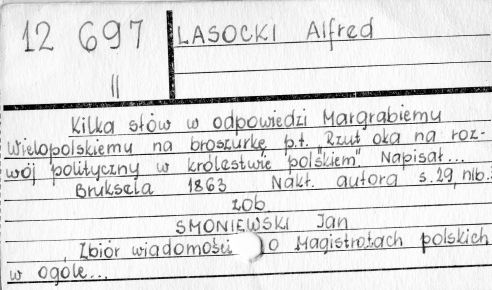 12 697
II
LASOCKI Alfred
Kilka słów w odpowiedzi Margrabiemu
Wielopolskiemu na broszurkę p.t. "Rzut oka na roz-
wój polityczny w królestwie polskiem". Napisał...
Bruksela 1863 Nakł. autora s. 29, nlb.
zob.
SMONIEWSKI Jan
Zbiór wiadomości o Magistratach polskich
w ogóle...